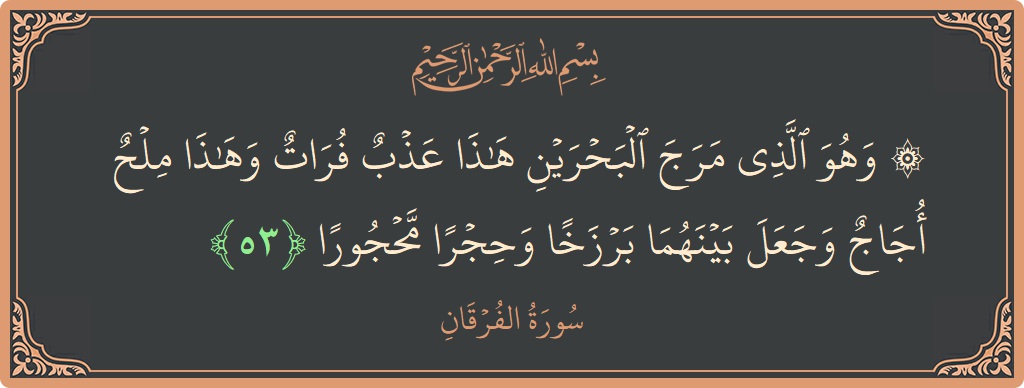 بِسْمِ اللَّهِ الرَّحْمَٰنِ الرَّحِيمِ
۞ وَهُوَ ٱلَّذِى مَرَجَ ٱلْبَحْرَيْنِ هَـٰذَا عَذْبٌ فُرَاتٌ وَهَـٰذَا مِلْحٌ
أُجَاجٌ وَجَعَلَ بَيْنَهُمَا بَرْزَخًا وَحِجْرًا مَّحْجُورًا ﴿٥٣﴾
سُورَةُ الفُرۡقَانِ